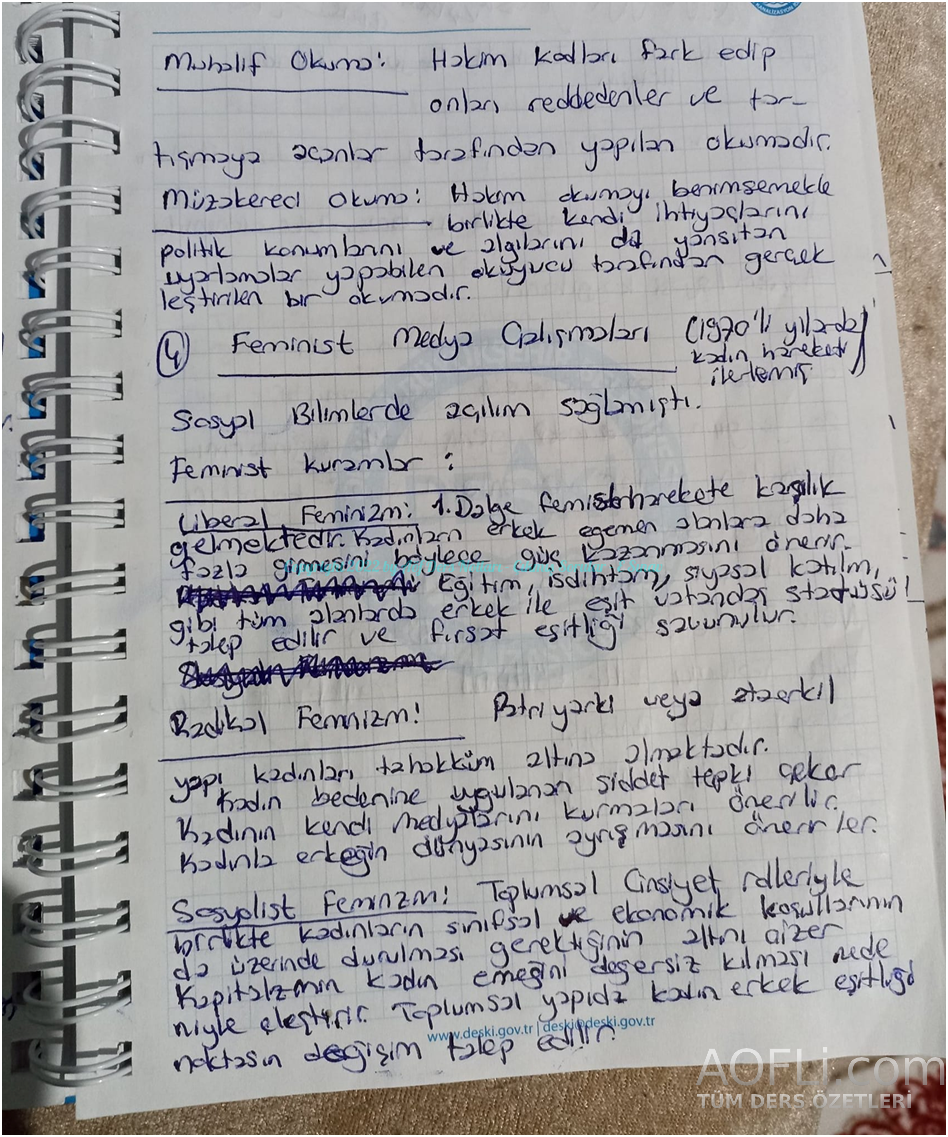 Muhalif Okuma: Hakim kodları fark edip
onları reddedenler ve tar-
tışmaya açanlar tarafından yapılan okumadır.
Müzakereci Okuma: Hakim okumayı benimsemekle
birlikte kendi ihtiyaçlarını
politik konumlarını ve algılarını da yansıtan
uyarlamalar yapabilen okuyucu tarafından gerçek
leştirilen bir okumadır.
4 Feminist Medya Çalışmaları (1970'li yıllarda
kadın hareketi
ilerlemiş)
Sosyal Bilimlerde açılım sağlamıştı.
Feminist kuramlar :
Liberal Feminizm: 1. Dalga feminist harekete karşılık
gelmektedir. Kadınların erkek egemen alanlara daha
fazla girmesini böylece güç kazanmasını önerir.
Eğitim, isdihtam, siyasal katılım,
gibi tüm alanlarda erkek ile eşit vatandaş statüsü
talep edilir ve fırsat eşitliği savunulur.
Radikal Feminizm: Patriyarki veya ataerkil
yapı kadınları tahakküm altına almaktadır.
Kadın bedenine uygulanan şiddet tepki çeker
Kadının kendi medyalarını kurmaları önerilir.
Kadınla erkeğin dünyasının ayrışmasını önerirler.
Sosyalist Feminizm: Toplumsal Cinsiyet rolleriyle
birlikte kadınların sınıfsal ve ekonomik koşullarının
da üzerinde durulması gerektiğinin altını çizer
Kapitalizmin kadın emeğini değersiz kılması nede
niyle eleştirir. Toplumsal yapıda kadın erkek eşitliği
www.deski.gov.tr | deski@deski.gov.tr
noktasın değişim talep edilir.
AOFLi.com
TÜM DERS ÖZETLERİ